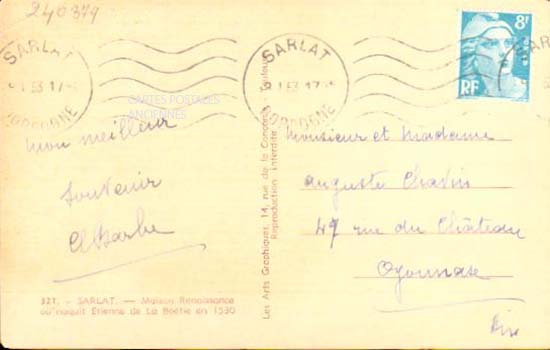 240379
SARLAT
I 53 17
DORDOGNE
SARLAT
I 53 17
DORDOGNE
8f
RF
CARTES POSTALES
ANCIENNES
mon meilleur
souvenir
Monsieur et Madame
Auguste Chavin
47 rue du Château
Oyonnax
Ain
321. - SARLAT. — Maison Renaissance
où naquit Étienne de La Boétie en 1530
Les Arts Graphiques, 14, rue de la Concorde, Toulouse
Reproduction Interdite